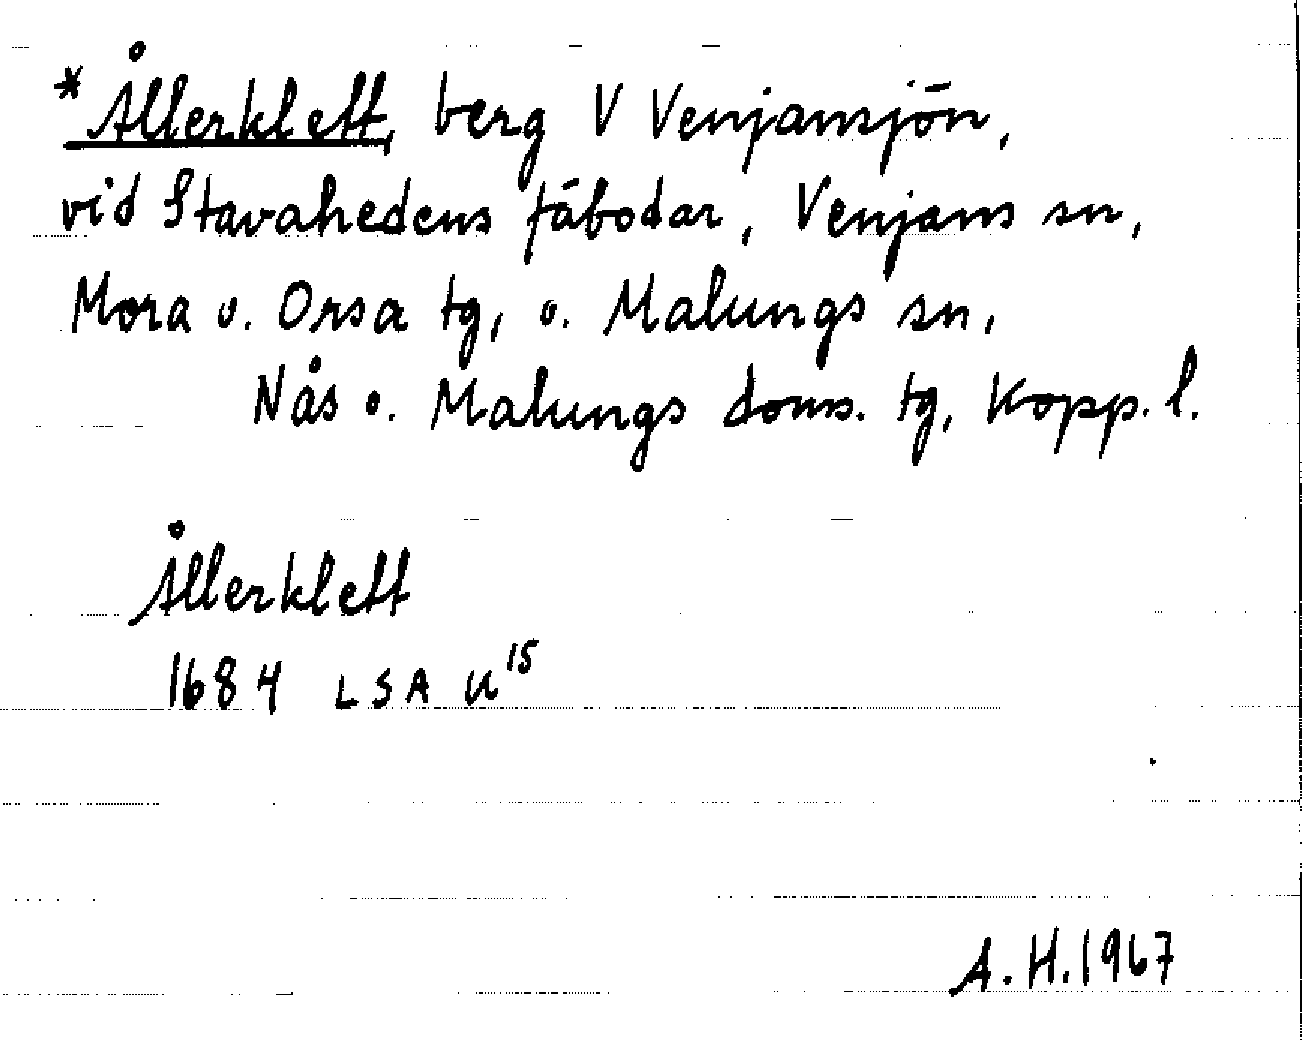 *Ållerklett, berg V Venjansjön,
vid Stavahedens fäbodar, Venjans sn,
Mora o. Orsa tg, o. Malungs sn,
Nås o. Malungs doms. tg, Kopp. l.
Ållerklett
1684 LSA U¹⁵
A.H. 1967